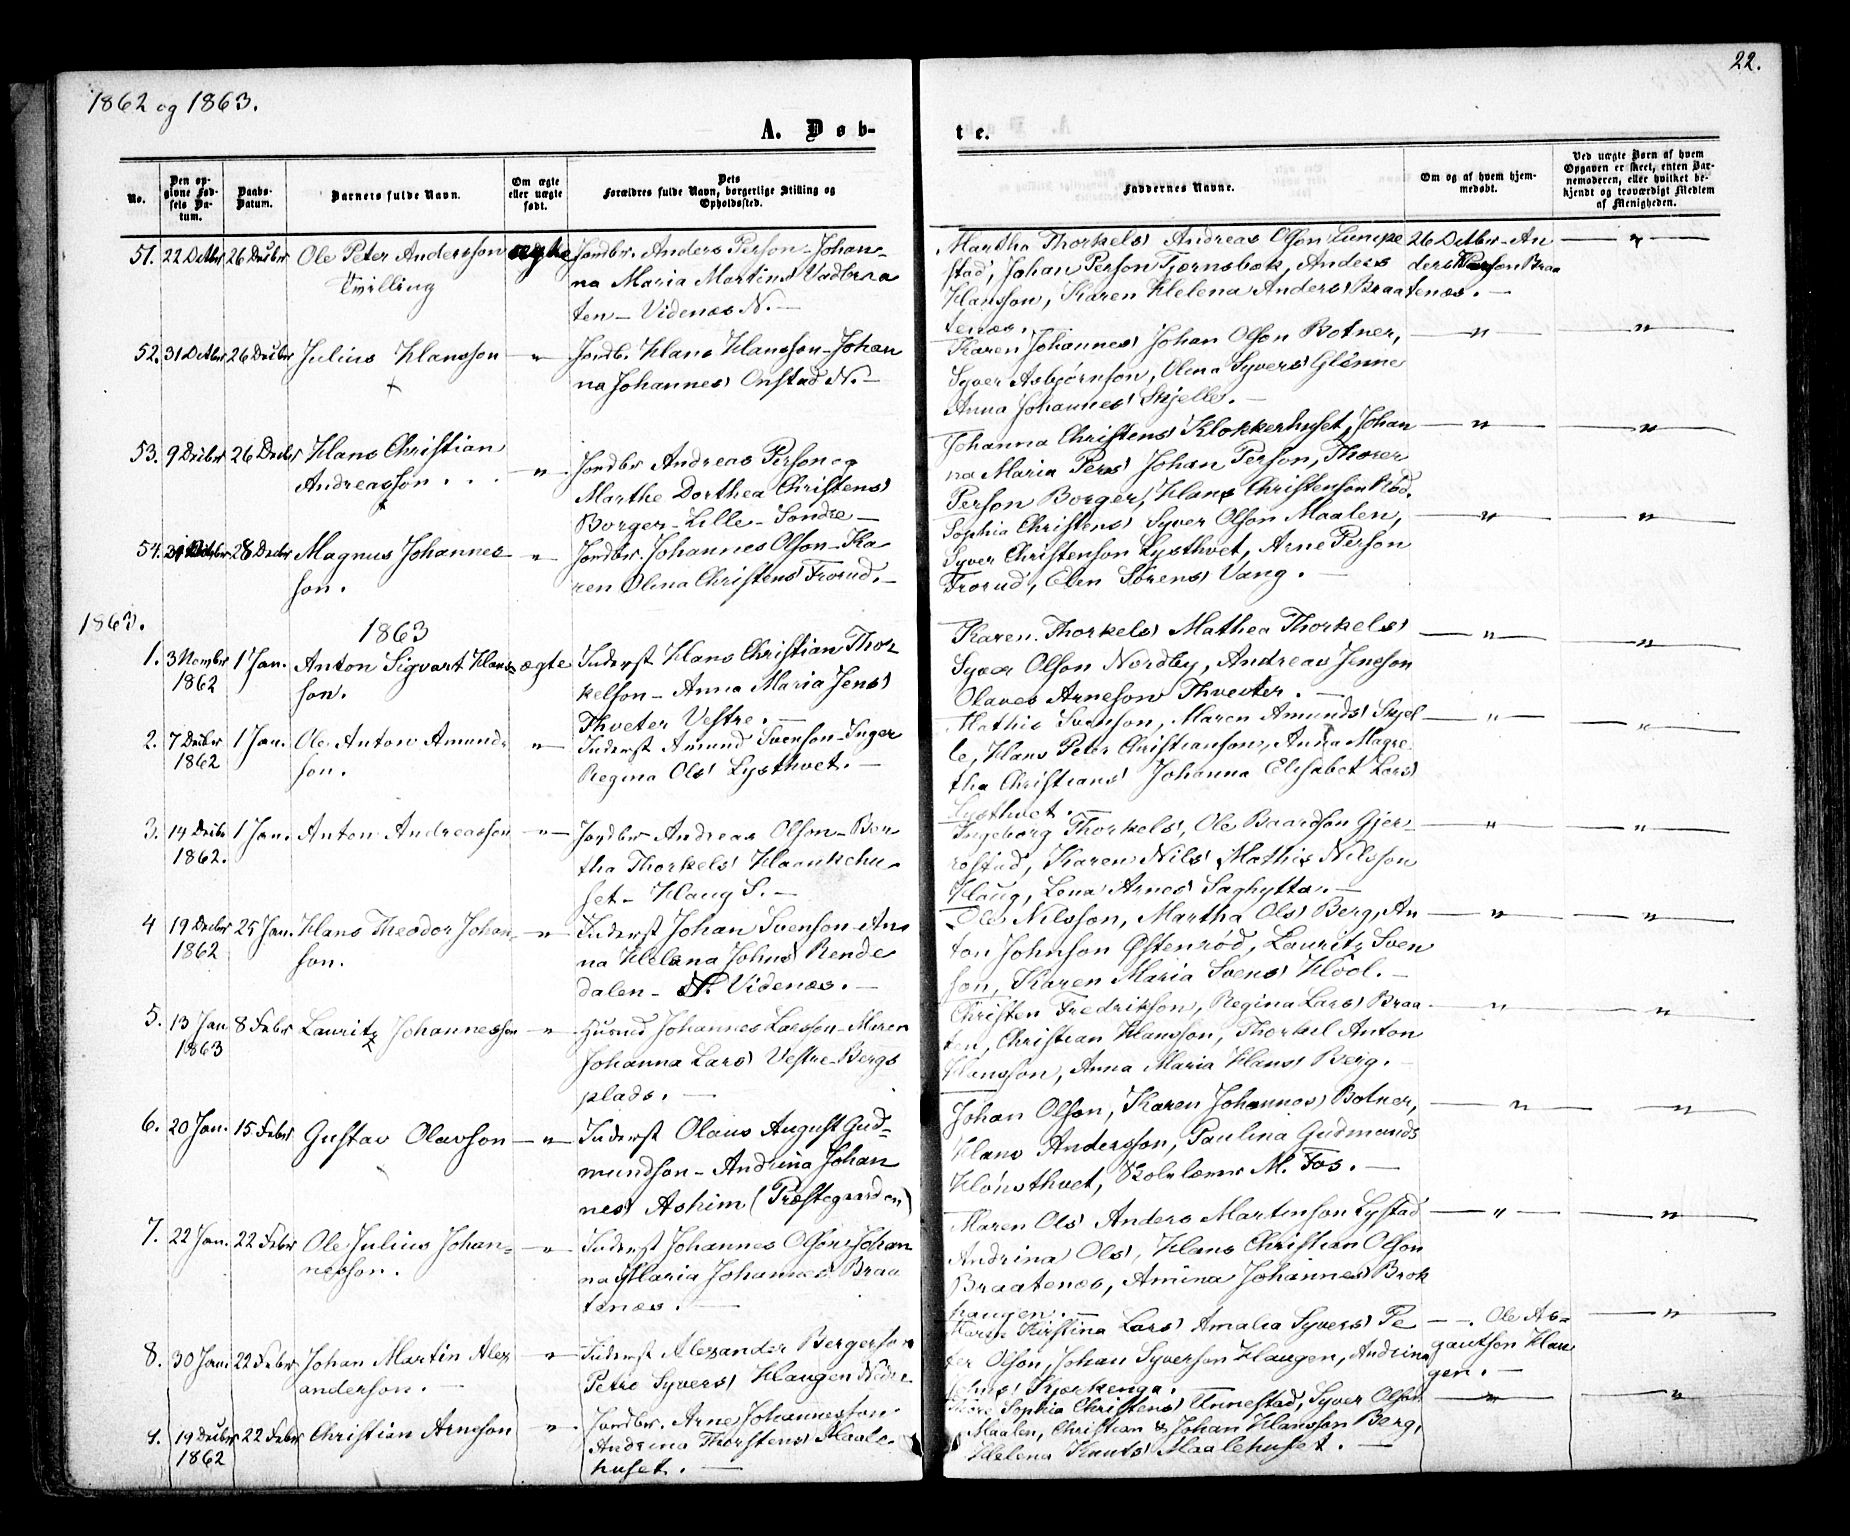 22.
1862 og 1863.
A. Døb-
te.
No.
Den op-
givne Fød-
sels Da-
tum.
Daabs-
Datum.
Barnets fulde Navn.
Om ægte
eller uægte
født.
Dets
Forældres fulde Navn, borgerlige Stilling og
Opholdssted.
Faddernes Navne.
Om og af hvem hjem-
medøbt.
Ved uægte Børn af hvem
Opgaven er skeet, enten Bar-
nemoderen, eller hvilket be-
kjendt og troværdigt Medlem
af Menigheden.
51. 22 Octbr 26 Decbr Ole Peter Andersson ægte
Tvilling
Jordbr. Anders Person - Johan-
na Maria Martins Vadbraa
ten - Videnæs N. -
Martha Thorkels, Andreas Olson Lunde
stad, Johan Person Tjernsbæk, Anders
Hansson, Karen Helena Anders Braa
tenæs.
26 Octbr. An
ders Person Braa
tenæs. -
52. 31 Octbr 26 Decbr Julius Hansson - " -
Jordb. Hans Hansson - Johan
na Johannes Onstad N. -
Karen Johannes, Johan Olson Botner,
Syver Asbjørnson, Olena Syvers Glenne
Anna Johannes Skjelle. -
53. 9 Decbr 26 Decbr Hans Christian
Andreasson . . . - " -
Jordbr Andreas Person og
Marthe Dorthea Christens
Borger - Lille - Søndre -
Johanna Christens Klokkerhuset, Johan
na Maria Pers, Johan Person, Thorer
Person Borger, Hans Christenson Rød.
54. 28 Decbr Magnus Johannes
son. - " -
Jordbr. Johannes Olson - Ka-
ren Olena Christens Frorud. -
Sophia Christens, Syver Olson Maalen,
Syver Christenson Lysthvet, Arne Person
Frorud, Elen Sørens Vang. -
1863.
1863
1. 3 Nombr 1 Jan. Anton Sigvart Hans- ægte
1862 son.
Inderst Hans Christian Thor
kelson - Anna Maria Jens
Thveter Vestre. -
Karen Thorkels, Mathea Thorkels
Syver Olson Nordby, Andreas Jensson
Olaves Arneson Thveter. -
2. 7 Decbr 1 Jan. Ole Anton Amund- - " -
1862 son.
Inderst Amund Svenson - Inger
Regina Ols Lysthvet. -
Mathis Svenson, Maren Amunds Skjel
le, Hans Peter Christianson, Anna Magre
tha Christians, Johanna Elisabet Lars
Lysthvet. -
3. 14 Decbr 1 Jan. Anton Andreasson - " -
1862.
Jordbr Andreas Olson - Ber-
tha Thorkels Haankehu-
set - Haug S. -
Ingeborg Thorkels, Ole Baardson Gjer-
restad, Karen Nils, Mathis Nilsson
Haug, Lena Arnes Saghytta. -
4 19 Decbr 25 Jan. Hans Theodor Johan- - " -
1862 son.
Inderst Johan Svenson - An
na Helena Johns Rende
dalen - N. Videnæs. -
Ole Nilsson, Martha Ols Berg, An
ton Johnson Østenrød, Lauritz Sven
son, Karen Maria Svens Hool. -
5. 13 Jan 8 Febr Lauritz Johannesson - " -
1863
Husmd Johannes Larsson - Maren
Johanna Lars Vestre - Bergs
plads. -
Christen Fredrikson, Regina Lars Braa-
ten, Christian Hansson, Thorkel Anton
Hansson, Anna Maria Hans Berg. -
6. 20 Jan. 15 Febr Gustav Olavson - " -
Inderst Olaus August Gud-
mundson - Andrina Johan
nes Ashim (Præstegaarden)
Johan Olson, Karen Johannes Botner,
Hans Andersson, Paulina Gudmunds
Hønsthvet, M. Fos. -
7. 22 Jan. 22 Febr Ole Julius Johan- - " -
nesson.
Inderst Johannes Olson - Johan
na Maria Johannes Braa
tenæs. -
Maren Ols, Anders Martinson Lystad
Andrina Ols, Hans Christian Olson
Braatenæs, Amina Johannes Brok
haugen. -
8. 30 Jan. 22 Febr Johan Martin Alex - " -
anderson. -
Inderst Alexander Bergerson
Petre Syvers Haugen Nedre
Karen Kirstina Lars, Amalia Syvers, Pe
ter Olson, Johan Syverson Haugen, Andrina
Johns Kjerkenga.
- . Ole As-
gautson Hau
gen. -
9. 19 Decbr 22 Febr Christian Arneson - " -
1862
Jordbr. Arne Johannesson
Andrina Thorstens Maale-
huset. -
Sophia Christens Unnestad, Syver Olson
Maalen, Christian & Johan Hansson Berg,
Helena Knuts Maalehuset. -